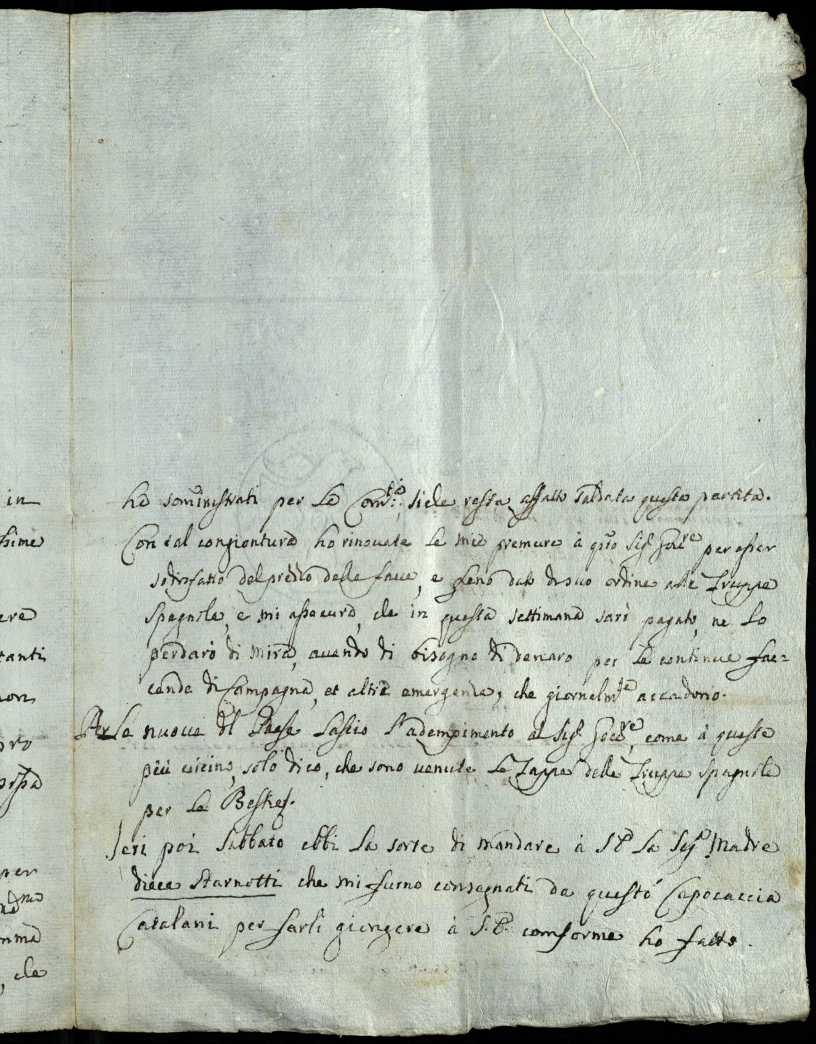 in
ssime
ere
tanti
non
pro
per
, che
hò somministrati per le resta affatto saldata questa partita.
Con tal congiontura hò rinovate le mie premure à q̃to Sig.r Gov.re per esser
sodisfatto del prezzo delle fave, e fieno dato di suo ordine alle Truppe
Spagnole, e mi assecurò, che in questa settimana sarò pagato, ne lo
perdarò di mira, avendo di bisogno di denaro per le continue fac=
cende di Campagna, et altre emergenze, che giornelm.te accadono.
Per le nuove del Paese lascio l'adempimento al Sig.r Gov.re, come à queste
più vicino, solo dico, che sono venute le Tappe delle Truppe Spagnole
per le
Ieri poi Sabbato ebbi la sorte di mandare à S.E. la Sig.a Madre
diece Starnotti che mi furno consegnati da questo Capocaccia
Catalani per farli giongere à S.E. comforme hò fatto.